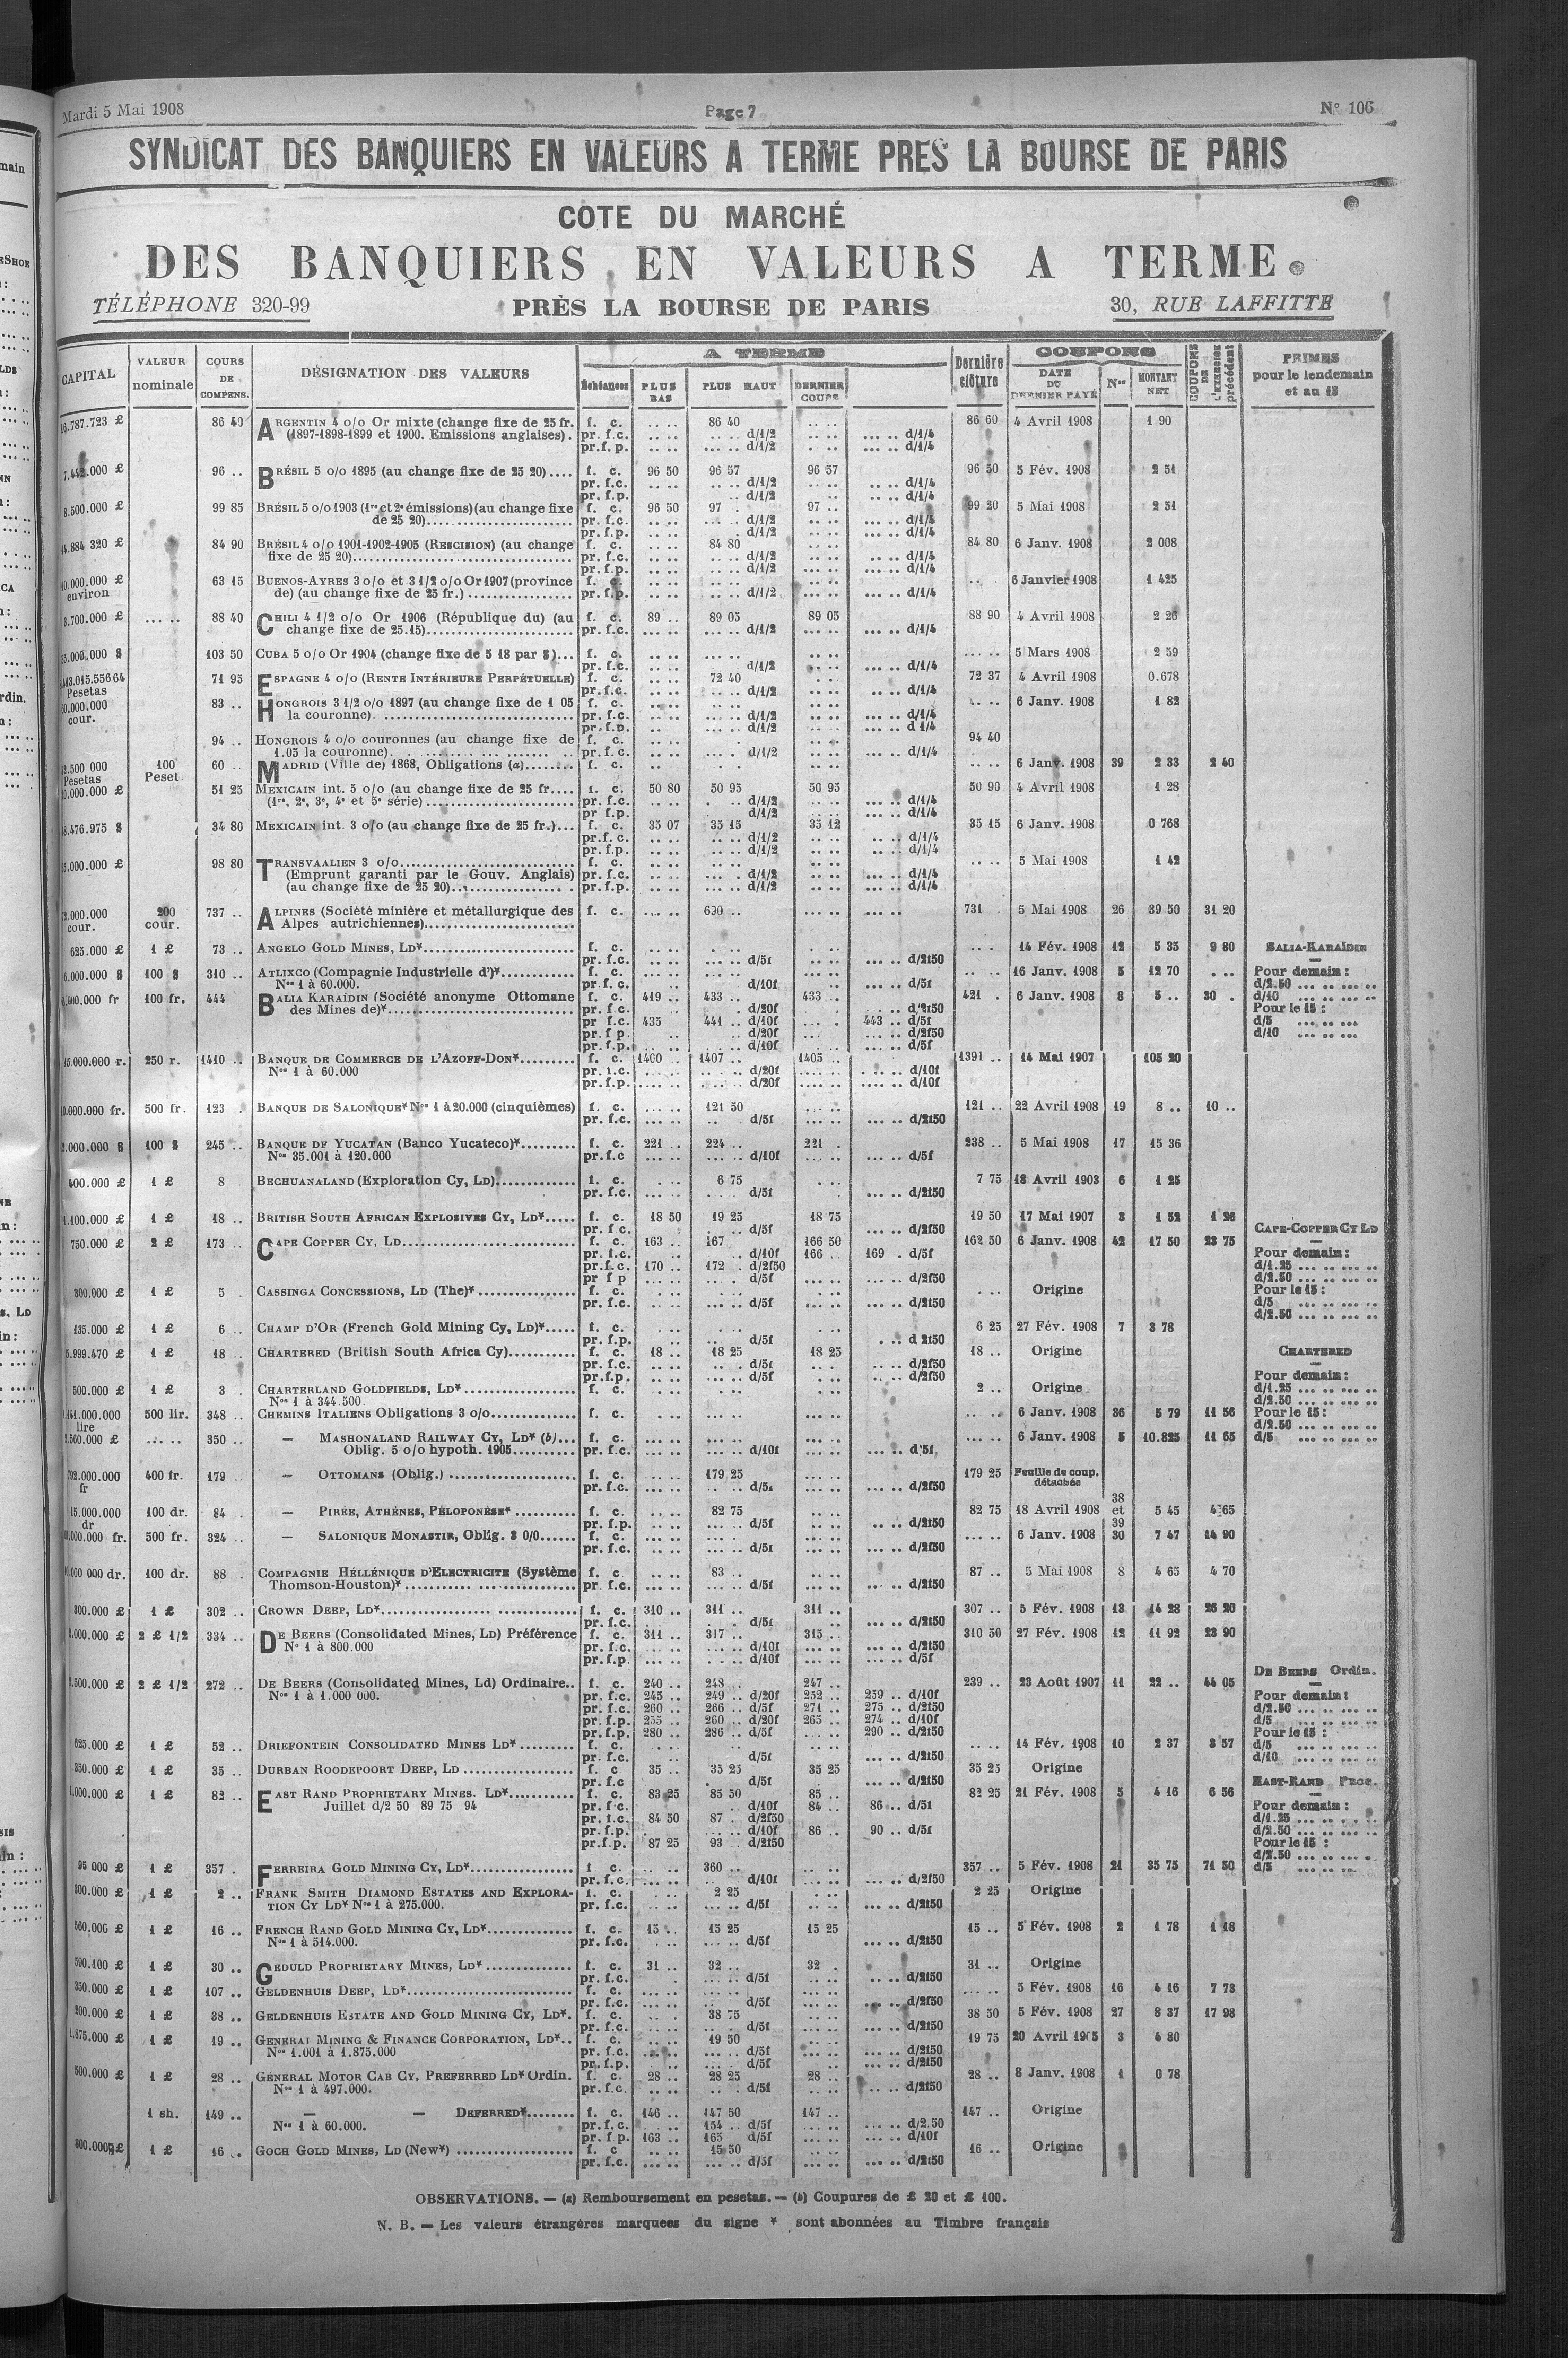 Mardi 5 Mai 1908 Page 7 N° 106
SYNDICAT DES BANQUIERS EN VALEURS A TERME PRES LA BOURSE DE PARIS
COTE DU MARCHÉ
DES BANQUIERS EN VALEURS A TERME
TÉLÉPHONE 320-99 PRÈS LA BOURSE DE PARIS 30, RUE LAFFITTE
CAPITAL VALEUR nominale COURS DE COMPENS. DÉSIGNATION DES VALEURS A TERME Échéances PLUS BAS PLUS HAUT DERNIER COURS Dernière clôture COUPONS DATE DU DERNIER PAYÉ Nos MONTANT NET COUPONS DE L'EXERCICE précédent PRIMES pour le lendemain et au 15
86 40 ARGENTIN 4 o/o Or mixte (change fixe de 25 fr. f. c. 86 40 86 60 4 Avril 1908 1 90
(1897-1898-1899 et 1900. Emissions anglaises). pr. f.c. d/1/2 d/1/4
pr.f.p. d/1/2 d/1/4
96 .. BRÉSIL 5 o/o 1895 (au change fixe de 25 20).... f. c. 96 50 96 57 96 57 96 50 5 Fév. 1908 2 51
pr. f.c. d/1/2 d/1/4
pr. f.p. d/1/2 d/1/4
8.500.000 £ 99 85 BRÉSIL 5 o/o 1903 (1re et 2e émissions) (au change fixe f. c. 96 50 97 . 97 .. 99 20 5 Mai 1908 2 51
de 25 20) pr. f.c. d/1/2 d/1/4
pr. f.p. d/1/2 d/1/4
84 90 BRÉSIL 4 o/o 1901-1902-1905 (RESCISION) (au change f. c. 84 80 84 80 6 Janv. 1908 2 008
fixe de 25 20) pr. f.c. d/1/2 d/1/4
pr. f.p. d/1/2 d/1/4
environ 63 15 BUENOS-AYRES 3 o/o et 3 1/2 o/o Or 1907 (province f. c. 6 Janvier 1908 1 425
de) (au change fixe de 25 fr.) pr. f.p. d/1/2 d/1/4
88 40 CHILI 4 1/2 o/o Or 1906 (République du) (au f. c. 89 .. 89 05 89 05 88 90 4 Avril 1908 2 26
change fixe de 25.15) pr. f.c. d/1/2 d/1/4
103 50 CUBA 5 o/o Or 1904 (change fixe de 5 18 par $)... f. c. 5 Mars 1908 2 59
pr. f.c. d/1/2 d/1/4
71 95 ESPAGNE 4 o/o (RENTE INTÉRIEURE PERPÉTUELLE) f. c. 72 40 72 37 4 Avril 1908 0.678
Pesetas pr. f.c. d/1/2 d/1/4
83 .. HONGROIS 3 1/2 o/o 1897 (au change fixe de 1 05 f. c. 6 Janv. 1908 1 82
cour. la couronne) pr. f.c. d/1/2 d/1/4
pr. f.p. d/1/2 d 1/4
94 .. HONGROIS 4 o/o couronnes (au change fixe de f. c. 94 40
1.05 la couronne) pr. f. c. d/1/2 d/1/4
Pesetas 100 Peset. 60 .. MADRID (Ville de) 1868, Obligations (a) f. c. 6 Janv. 1908 39 2 33 2 40
51 25 MEXICAIN int. 5 o/o (au change fixe de 25 fr.... f. c. 50 80 50 95 50 95 50 90 4 Avril 1908 1 28
(1re, 2e, 3e, 4e et 5e série) pr. f.c. d/1/2 d/1/4
pr f.p. d/1/2 d/1/4
34 80 MEXICAIN int. 3 o/o (au change fixe de 25 fr.)... f. c. 35 07 35 15 35 12 35 15 6 Janv. 1908 0 768
pr.f. c. d/1/2 d/1/4
pr. f.p. d/1/2 d/1/4
98 80 TRANSVAALIEN 3 o/o f. c. 5 Mai 1908 1 42
(Emprunt garanti par le Gouv. Anglais) pr. f.c. d/1/2 d/1/4
(au change fixe de 25 20) pr. f.p. d/1/2 d/1/4
cour. 200 cour. 737 .. ALPINES (Société minière et métallurgique des f. c. 690 .. 731 . 5 Mai 1908 26 39 50 31 20
Alpes autrichiennes)
625.000 £ 1 £ 73 .. ANGELO GOLD MINES, LD* f. c. 14 Fév. 1908 12 5 35 9 80 BALIA-KARAÏDIN
pr. f.c. d/5f d/2f50
100 $ 310 .. ATLIXCO (Compagnie Industrielle d')* f. c. 16 Janv. 1908 5 12 70 Pour demain :
Nos 1 à 60.000. pr. f. c. d/10f d/5f d/2.50
100 fr. 444 BALIA KARAÏDIN (Société anonyme Ottomane f. c. 419 .. 433 .. 433 . 421 . 6 Janv. 1908 8 5 .. 30 . d/10
des Mines de)* pr. f.c. d/20f d/2f50 Pour le 15 :
pr f.c. 435 441 .. d/10f 443 .. d/5f d/5
pr. f p. d/20f d/2f50 d/10
pr. f.p. d/10f d/5f
250 r. 1410 .. BANQUE DE COMMERCE DE L'AZOFF-DON* f. c. 1400 .. 1407 .. 1405 .. 1391 .. 14 Mai 1907 105 20
Nos 1 à 60.000 pr. f.c. d/20f d/10f
pr. f.p. d/20f d/10f
500 fr. 123 .. BANQUE DE SALONIQUE* Nos 1 à 20.000 (cinquièmes) f. c. 121 50 121 .. 22 Avril 1908 19 8 .. 10 ..
pr. f.c. d/5f d/2f50
100 $ 245 .. BANQUE DE YUCATAN (Banco Yucateco)* f. c. 221 .. 224 .. 221 . 238 .. 5 Mai 1908 17 15 36
Nos 35.001 à 120.000 pr.f.c d/10f d/5f
400.000 £ 1 £ 8 BECHUANALAND (Exploration Cy, LD) f. c. 6 75 7 75 18 Avril 1903 6 1 25
pr. f.c. d/5f d/2f50
1 £ 18 .. BRITISH SOUTH AFRICAN EXPLOSIVES CY, LD* f. c. 18 50 19 25 18 75 19 50 17 Mai 1907 3 1 52 1 26
pr. f c. d/5f d/2f50 CAPE-COPPER CY LD
750.000 £ 2 £ 173 .. CAPE COPPER CY, LD f. c. 163 .. 167 166 50 162 50 6 Janv. 1908 42 17 50 23 75
pr. f.c. d/10f 166 .. 169 . d/5f Pour demain :
pr.f.c. 170 .. 172 . d/2f50 d/1.25
pr f p d/5f d/2f50 d/2.50
300.000 £ 1 £ 5 . CASSINGA CONCESSIONS, LD (The)* f. c. Origine Pour le 15 :
pr. f.c. d/5f d/2f50 d/5
d/2.50
135.000 £ 1 £ 6 .. CHAMP D'OR (French Gold Mining Cy, LD)* f. c. 6 25 27 Fév. 1908 7 3 78
pr. f.p. d/5f d 2f50
1 £ 18 .. CHARTERED (British South Africa Cy) f. c. 18 .. 18 25 18 25 18 .. Origine CHARTERED
pr. f.c. d/5f d/2f50
pr.f.p. d/5f d/2f50 Pour demain :
500.000 £ 1 £ 3 . CHARTERLAND GOLDFIELDS, LD* f. c. 2 .. Origine d/1.25
Nos 1 à 344.500. d/2.50
500 lir. 348 .. CHEMINS ITALIENS Obligations 3 o/o f. c. 6 Janv. 1908 36 5 79 11 56 Pour le 15 :
lire d/2.50
350 .. — MASHONALAND RAILWAY CY, LD* (b)... f. c. 6 Janv. 1908 5 10.825 11 65 d/5
Oblig. 5 o/o hypoth. 1905 pr. f.c. d/10f d/5f
fr 400 fr. 179 .. — OTTOMANS (Oblig.) f. c. 179 25 179 25 Feuille de coup. détachés
pr. f.c. d/5f d/2f50
dr 100 dr. 84 . — PIRÉE, ATHÈNES, PÉLOPONÈSE* f. c. 82 75 82 75 18 Avril 1908 38 et 39 5 45 4 65
pr. f.p. d/5f d/2f50
500 fr. 324 .. — SALONIQUE MONASTIR, Oblig. 3 0/0 f. c. 6 Janv. 1908 30 7 47 14 90
pr. f.c. d/5f d/2f50
100 dr. 88 . COMPAGNIE HÉLLÉNIQUE D'ELECTRICITE (Système f. c 83 .. 87 .. 5 Mai 1908 8 4 65 4 70
Thomson-Houston)* pr. f.c. d/5f d/2f50
300.000 £ 1 £ 302 .. CROWN DEEP, LD* f. c. 310 .. 311 .. 311 .. 307 .. 5 Fév. 1908 13 14 28 26 20
pr. f.c. d/5f d/2f50
2 £ 1/2 334 .. DE BEERS (Consolidated Mines, LD) Préférence f. c. 311 .. 317 .. 315 .. 310 50 27 Fév. 1908 12 11 92 23 90
N° 1 à 800.000 pr. f.c. d/10f d/2f50
pr. f.p. d/10f d/5f
DE BEERS Ordin.
2 £ 1/2 272 .. DE BEERS (Consolidated Mines, Ld) Ordinaire.. f. c. 240 .. 248 .. 247 .. 239 .. 23 Août 1907 11 22 .. 44 05
Nos 1 à 1.000 000. pr. f.c. 245 .. 249 .. d/20f 252 .. 259 .. d/10f Pour demain :
pr. f.c. 260 .. 266 .. d/5f 271 .. 275 .. d/2f50 d/2.50
pr. f.p. 255 .. 260 .. d/20f 265 .. 274 .. d/10f d/5
pr. f.p. 280 .. 286 .. d/5f 290 .. d/2f50 Pour le 15 :
625.000 £ 1 £ 52 .. DRIEFONTEIN CONSOLIDATED MINES LD* f. c. 14 Fév. 1908 10 2 37 3 57 d/5
pr. f.c. d/5f d/2f50 d/10
350.000 £ 1 £ 35 .. DURBAN ROODEPOORT DEEP, LD f. c 35 .. 35 25 35 25 35 25 Origine
pr. f.c d/5f d/2f50 EAST-RAND Prop.
1 £ 82 .. EAST RAND PROPRIETARY MINES. LD* f. c. 83 25 85 50 85 .. 82 25 21 Fév. 1908 5 4 16 6 56
Juillet d/2 50 89 75 94 pr. f.c. d/10f 84 .. 86 .. d/5f Pour demain :
pr. f.c. 84 50 87 . d/2f50 d/1.25
pr. f.p. d/10f 86 .. 90 .. d/5f d/2.50
pr.f.p. 87 25 93 . d/2f50 Pour le 15 :
d/2.50
1 £ 357 . FERREIRA GOLD MINING CY, LD* f c. 360 .. 357 .. 5 Fév. 1908 21 35 75 71 50 d/5
pr. f.c. d/10f d/2f50
1 £ 2 .. FRANK SMITH DIAMOND ESTATES AND EXPLORA- f. c. 2 25 2 25 Origine
TION CY LD* Nos 1 à 275.000. pr. f.c. d/5f d/2f50
1 £ 16 .. FRENCH RAND GOLD MINING CY, LD* f. c. 15 .. 15 25 15 25 15 .. 5 Fév. 1908 2 1 78 1 18
Nos 1 à 514.000. pr. f.c. d/5f d/2f50
1 £ 30 .. GEDULD PROPRIETARY MINES, LD* f. c. 31 .. 32 .. 32 . 31 .. Origine
pr. f.c. d/5f d/2f50
1 £ 107 .. GELDENHUIS DEEP, LD* f. c. 5 Fév. 1908 16 4 16 7 73
pr. f.c. d/5f d/2f50
1 £ 38 .. GELDENHUIS ESTATE AND GOLD MINING CY, LD*. f. c. 38 75 38 50 5 Fév. 1908 27 8 37 17 98
pr. f.c. d/5f d/2f50
1 £ 19 .. GENERAL MINING & FINANCE CORPORATION, LD*.. f. c. 19 50 19 75 20 Avril 1905 3 4 80
Nos 1.001 à 1.875.000 pr. f.c. d/5f d/2f50
pr. f.p. d/5f d/2f50
500.000 £ 1 £ 28 .. GENERAL MOTOR CAB CY, PREFERRED LD* Ordin. f. c. 28 .. 28 25 28 .. 28 .. 8 Janv. 1908 1 0 78
Nos 1 à 497.000. pr. f.c. d/5f d/2f50
1 sh. 149 .. — — DEFERRED* f. c. 146 .. 147 50 147 .. 147 .. Origine
Nos 1 à 60.000. pr. f. c. 154 .. d/5f d/2.50
pr. f p. 163 .. 165 d/5f d/10f
1 £ 16 .. GOCH GOLD MINES, LD (New*) f. c 15 50 16 .. Origine
pr. f.c. d/5f d/2f50
OBSERVATIONS. — (a) Remboursement en pesetas. — (b) Coupures de £ 20 et £ 100.
N. B. — Les valeurs étrangères marquées du signe * sont abonnées au Timbre français